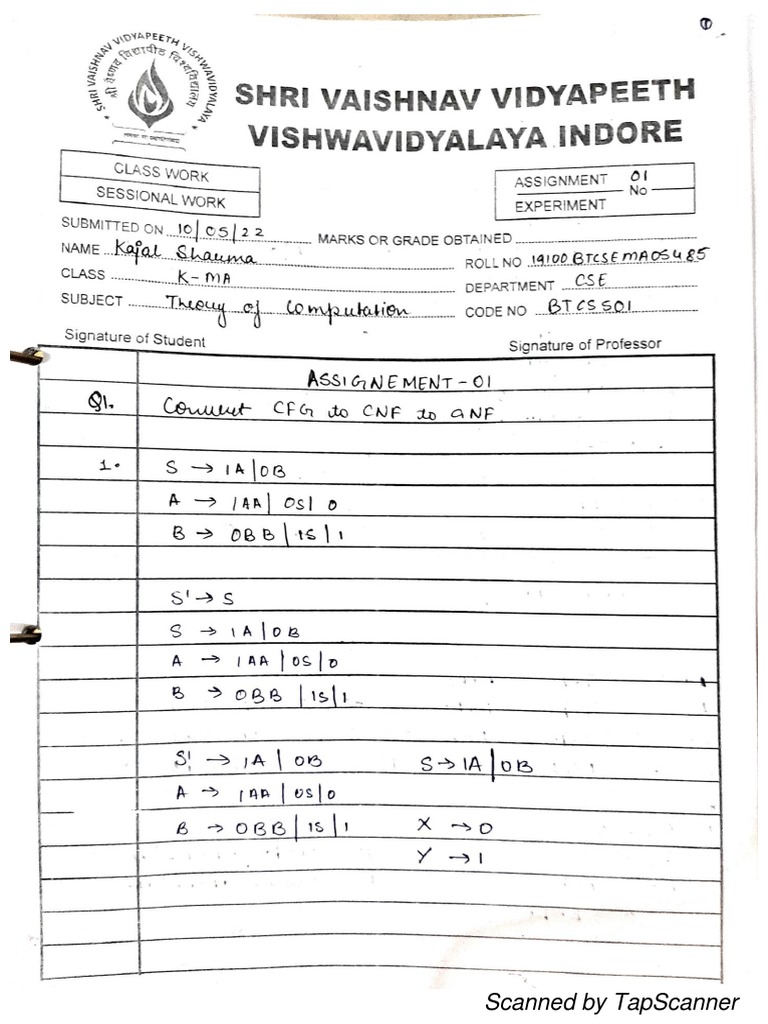 ①
SHRI VAISHNAV VIDYAPEETH VISHWAVIDYALAYA
श्री वैष्णव विद्यापीठ विश्वविद्यालय
SHRI VAISHNAV VIDYAPEETH
VISHWAVIDYALAYA INDORE
CLASS WORK
SESSIONAL WORK
ASSIGNMENT 01
No
EXPERIMENT
SUBMITTED ON 10/05/22 MARKS OR GRADE OBTAINED
NAME Kajal Sharma ROLL NO 19100BTCSEMA05485
CLASS K-MA DEPARTMENT CSE
SUBJECT Theory of Computation CODE NO BTCS501
Signature of Student Signature of Professor
ASSIGNEMENT-01
Q1. Convert CFG to CNF to GNF
1. S → 1A|0B
A → 1AA|0S|0
B → 0BB|1S|1
S' → S
S → 1A|0B
A → 1AA|0S|0
B → 0BB|1S|1
S' → 1A|0B S → 1A|0B
A → 1AA|0S|0
B → 0BB|1S|1 X → 0
Y → 1
Scanned by TapScanner